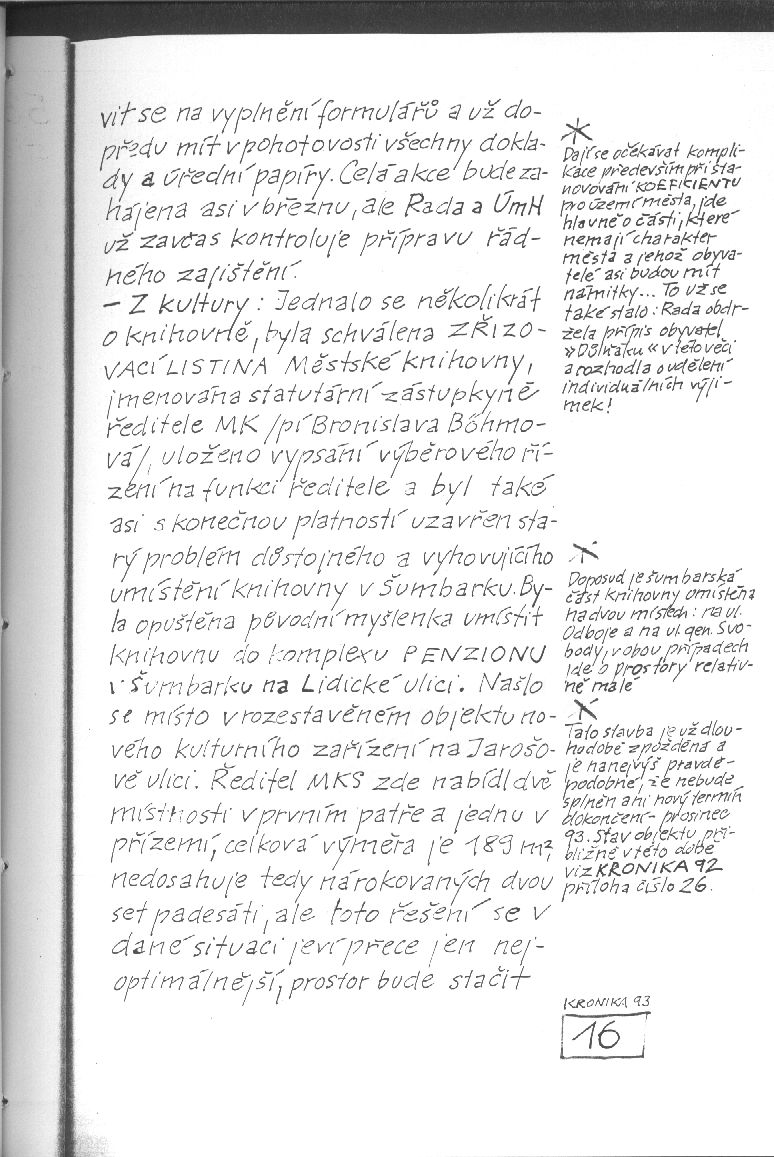 vit se na vyplnění formulářů a už do-
předu mít v pohotovosti všechny dokla-
dy a úřední papíry. Celá akce bude za-
hájena asi v březnu, ale Rada a ÚmH
už zavčas kontroluje přípravu řád-
ného zajištění.
— Z kultury : Jednalo se několikrát
o knihovně, byla schválena ZŘIZO-
VACÍ LISTINA Městské knihovny,
jmenována statutární zástupkyně
ředitele MK /pí Bronislava Böhmo-
vá/, uloženo vypsání výběrového ří-
zení na funkci ředitele a byl také
asi s konečnou platností uzavřen sta-
rý problém důstojného a vyhovujícího
umístění knihovny v Šumbarku. By-
la opuštěna původní myšlenka umístit
knihovnu do komplexu PENZIONU
v Šumbarku na Lidické ulici. Našlo
se místo v rozestavěném objektu no-
vého kulturního zařízení na Jarošo-
vě ulici. Ředitel MKS zde nabídl dvě
místnosti v prvním patře a jednu v
přízemí, celková výměra je 189 m²,
nedosahuje tedy nárokovaných dvou
set padesáti, ale toto řešení se v
dané situaci jeví přece jen nej-
optimálnější, prostor bude stačit
*
Dají se očekávat kompli-
kace především při sta-
novování KOEFICIENTU
pro území města, jde
hlavně o části, které
nemají charakter
města a jehož obyva-
telé asi budou mít
námitky... To už se
také stalo : Rada obdr-
žela přípis obyvatel
»Dolňáku« v této věci
a rozhodla o udělení
individuálních výji-
mek!
*
Doposud je šumbarská
část knihovny umístěna
na dvou místech : na ul.
Odboje a na ul. gen. Svo-
body, v obou případech
jde o prostory relativ-
ně malé
*
Tato stavba je už dlou-
hodobě zpožděna a
je nanejvýš pravdě-
podobné, že nebude
splněn ani nový termín
dokončení - prosinec
93. Stav objektu při-
bližně v této době
viz KRONIKA 92
příloha číslo 26.
KRONIKA 93
16